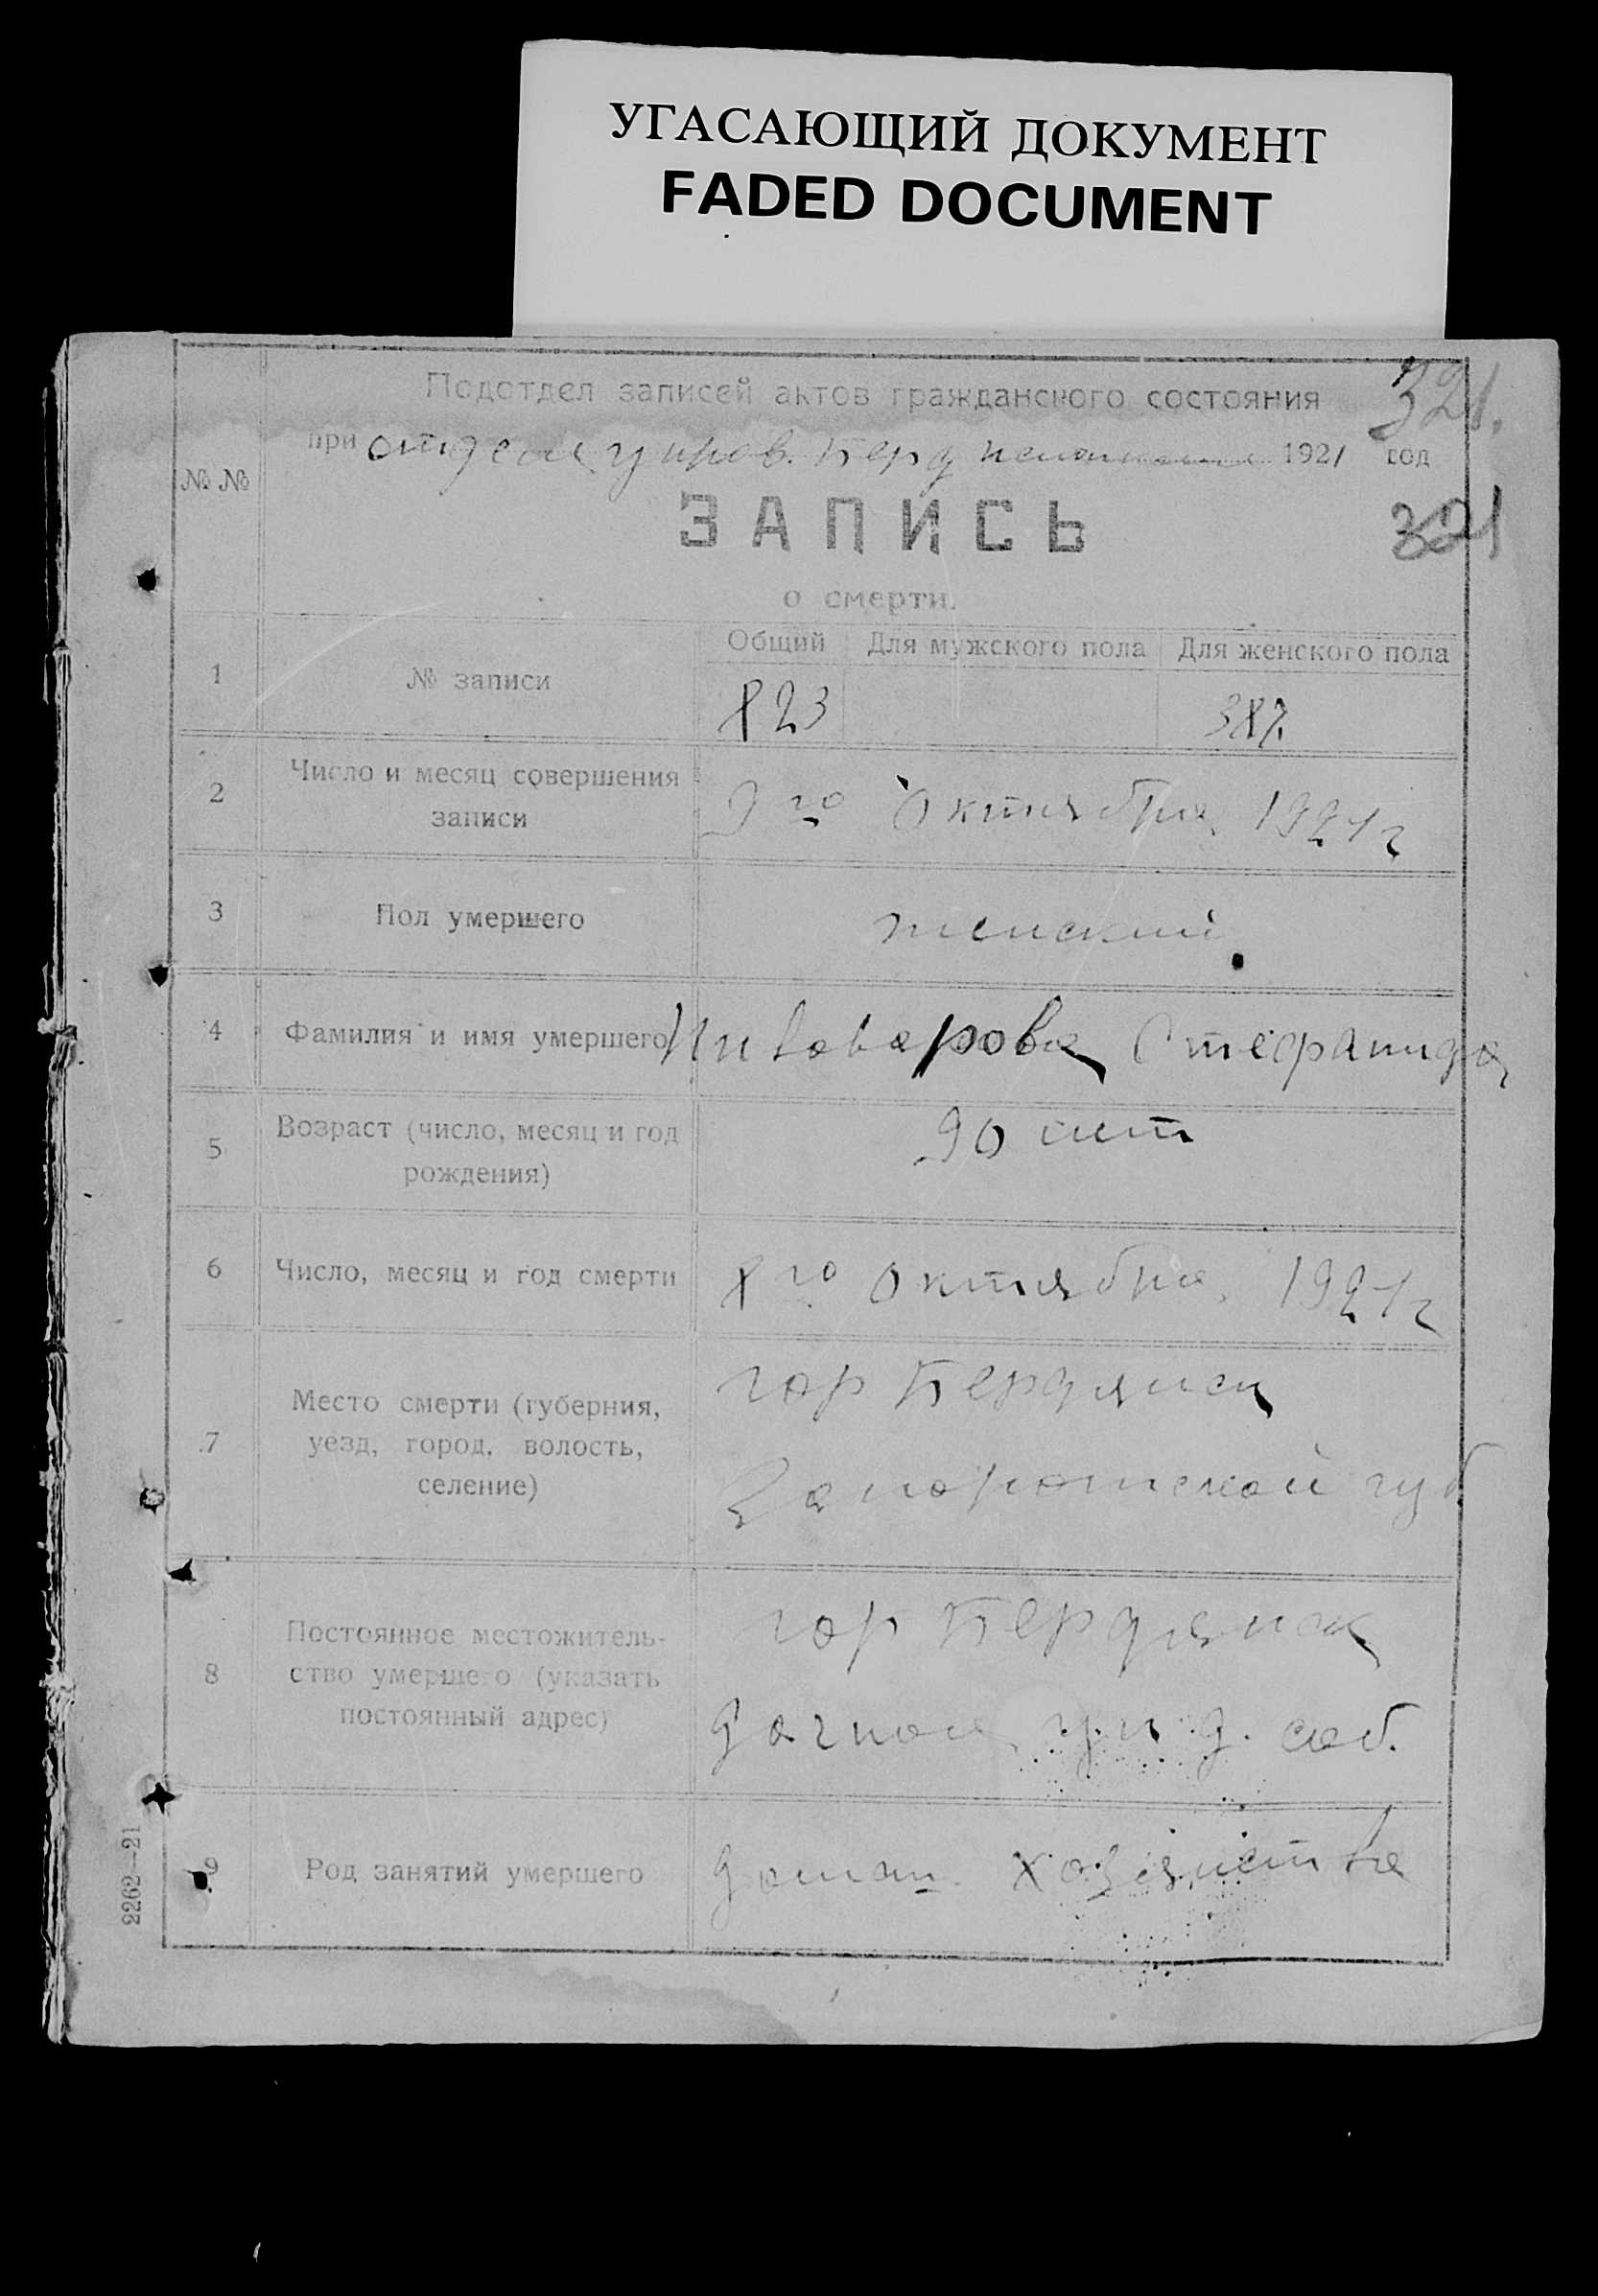 УГАСАЮЩИЙ ДОКУМЕНТ
FADED DOCUMENT
Подотдел записей актов гражданского состояния
321.
при отделе управ. Берд 1921 год
№ №
ЗАПИСЬ
321
о смерти.
Общий Для мужского пола Для женского пола
1 № записи
823 387
2 Число и месяц совершения
записи
9 го Октября 1921 г
3 Пол умершего женский
4 Фамилия и имя умершего Пивоварова Стефанида
5 Возраст (число, месяц и год
рождения)
90 лет
6 Число, месяц и год смерти 8 го октября 1921 г
7 Место смерти (губерния,
уезд, город, волость,
селение)
гор Бердянск
Запорожской губ
8 Постоянное местожитель-
ство умершего (указать
постоянный адрес)
гор Бердянск
Дачная ул д. соб.
9 Род занятий умершего домаш. хозяиства
2262—21